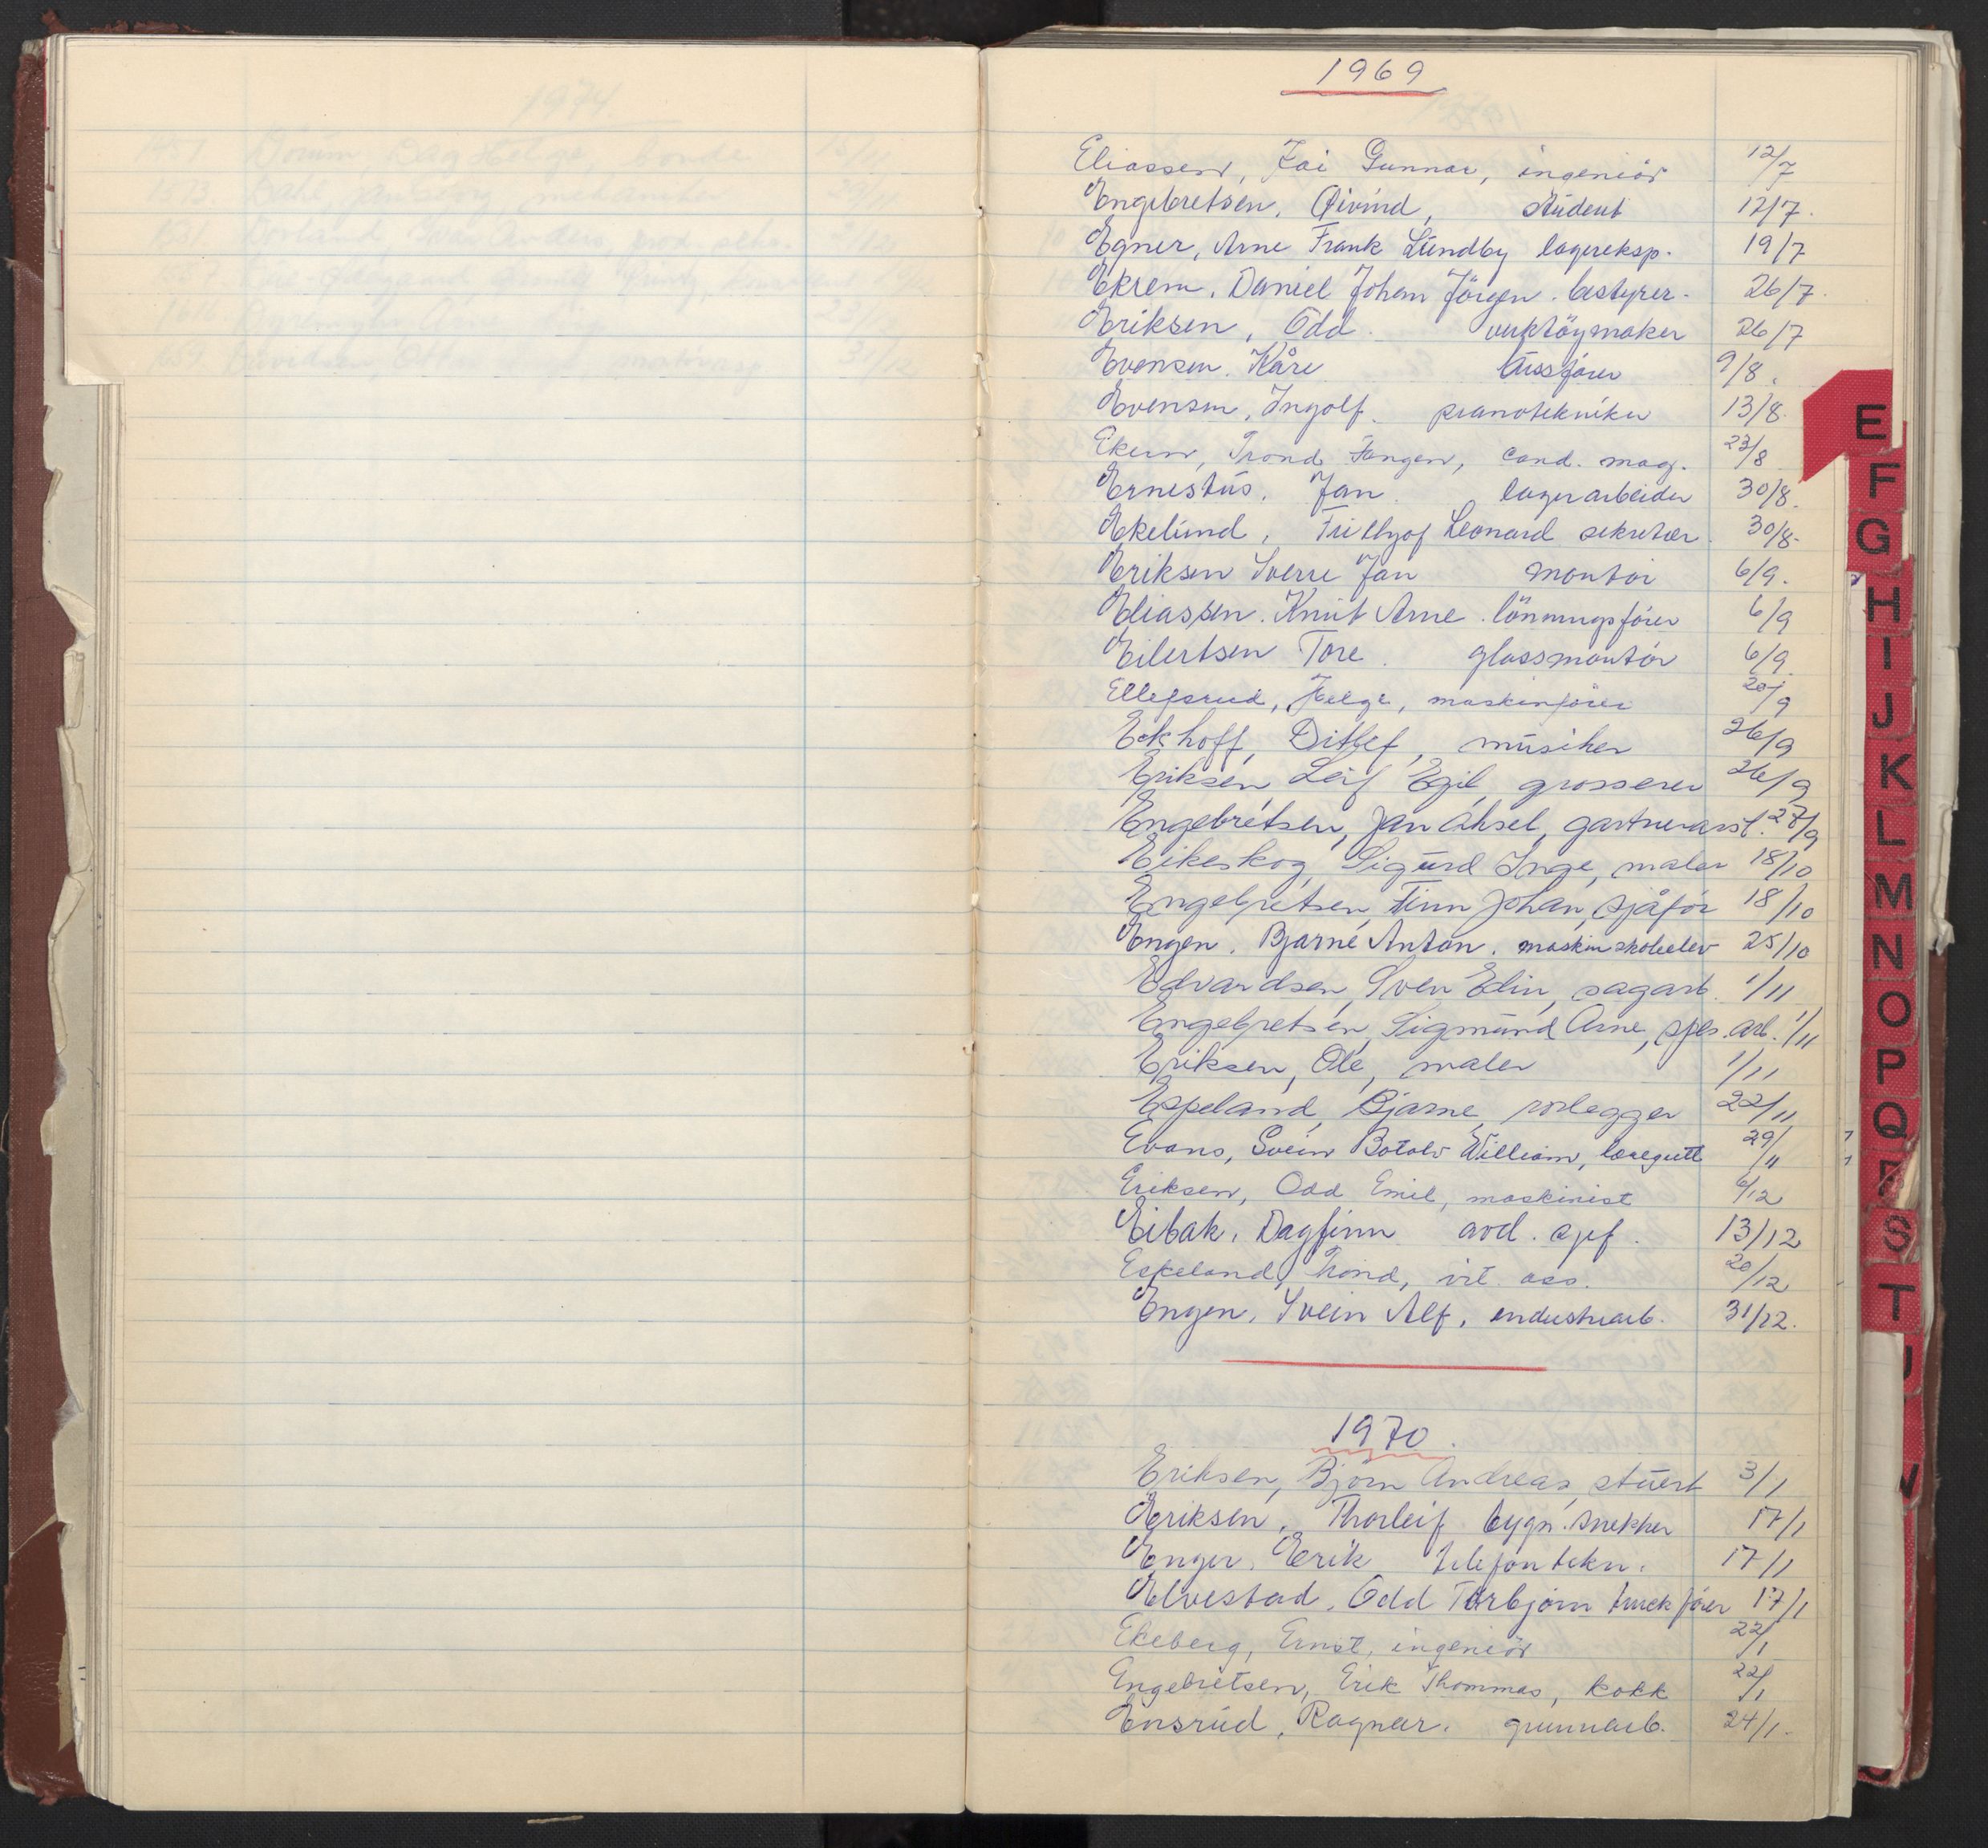 1969
Eliassen, Kai Gunnar, ingeniör 12/7
Engebretsen, Øivind, student 12/7.
Egner, Arne Frank Lundby lagereksp. 19/7
Ekrem, Daniel Johan Jörgen. bestyrer. 26/7.
Eriksen, Odd. verktöymaker 26/7
Evensen. Kåre bussförer 9/8.
Evensen, Ingolf. pianotekniker 13/8.
Ekern, Trond Fangen, cand. mag. 23/8
Ernestus, Jan. lagerarbeider 30/8.
Ekelund, Frithjof Leonard sekretær. 30/8.
Eriksen Sverre Jan montör 6/9.
Eliassen. Knut Arne. lönningsförer 6/9
Eilertsen Tore. glassmontör 6/9.
Ellefsrud, Helge, maskinförer 20/9
Eckhoff, Ditlef, musiker 26/9
Eriksen Leif Egil, grosserer 26/9
Engebretsen, Jan Aksel, gartnerass. 27/9
Eikeskog, Sigurd Inge, maler 18/10
Engebretsen, Finn Johan, sjåför 18/10
Engen, Bjarne Anton. maskinskoleelev 25/10
Edvardsen, Sven Elin, sagarb. 1/11
Engebretsen, Sigmund Arne, spes. arb. 1/11
Eriksen, Ole, maler 1/11
Espeland, Bjarne, rörlegger 22/11
Evans, Svein Botolv William, læregutt 29/11
Eriksen, Odd Emil, maskinist 6/12
Eibak, Dagfinn avd. sjef. 13/12
Espeland, Trond, vit. ass. 20/12
Engen, Svein Alf, industriarb. 31/12.
1970.
Eriksen, Björn Andreas, stuert 3/1
Eriksen, Thorleif bygn. snekker 17/1
Enger, Erik telefontekn. 17/1
Elvestad, Odd Torbjørn truckförer 17/1
Ekeberg, Ernst, ingeniör 22/1
Engebretsen, Erik Thommas, kokk 22/1
Ensrud, Ragnar. grunnarb. 24/1.
E
F
G
H
I
J
K
L
M
N
O
P
Q
R
S
T